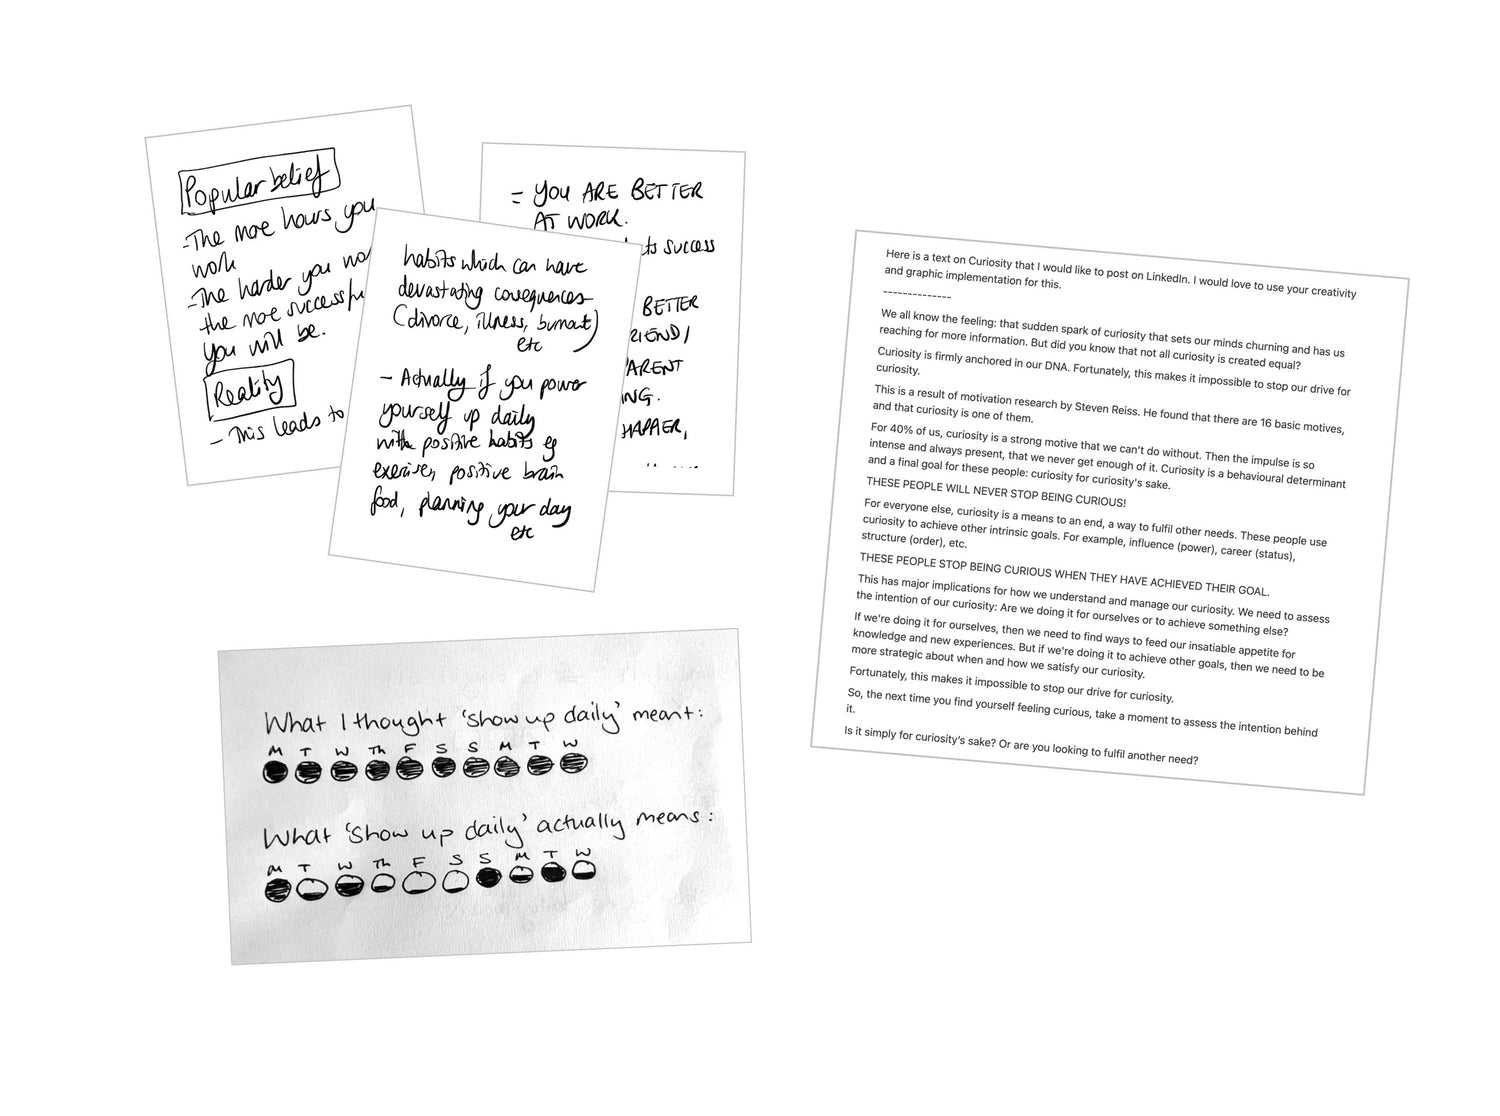 Popular belief
-The more hours you
work
-The harder you wo
the more successfu
you will be.
Reality
- This leads to
habits which can have
devastating consequences
(divorce, illness, burnout)
etc
- Actually if you power
yourself up daily
with positive habits eg
exercise, positive brain
food, planning your day
etc
= YOU ARE BETTER
AT WORK.
ts success
BETTER
RIEND/
PARENT
NG.
HAPPIER,
What I thought 'show up daily' meant:
M T W Th F S S M T W
What 'show up daily' actually means:
M T W Th F S S M T W
Here is a text on Curiosity that I would like to post on LinkedIn. I would love to use your creativity
and graphic implementation for this.
--------------
We all know the feeling: that sudden spark of curiosity that sets our minds churning and has us
reaching for more information. But did you know that not all curiosity is created equal?
Curiosity is firmly anchored in our DNA. Fortunately, this makes it impossible to stop our drive for
curiosity.
This is a result of motivation research by Steven Reiss. He found that there are 16 basic motives,
and that curiosity is one of them.
For 40% of us, curiosity is a strong motive that we can't do without. Then the impulse is so
intense and always present, that we never get enough of it. Curiosity is a behavioural determinant
and a final goal for these people: curiosity for curiosity's sake.
THESE PEOPLE WILL NEVER STOP BEING CURIOUS!
For everyone else, curiosity is a means to an end, a way to fulfil other needs. These people use
curiosity to achieve other intrinsic goals. For example, influence (power), career (status),
structure (order), etc.
THESE PEOPLE STOP BEING CURIOUS WHEN THEY HAVE ACHIEVED THEIR GOAL.
This has major implications for how we understand and manage our curiosity. We need to assess
the intention of our curiosity: Are we doing it for ourselves or to achieve something else?
If we're doing it for ourselves, then we need to find ways to feed our insatiable appetite for
knowledge and new experiences. But if we're doing it to achieve other goals, then we need to be
more strategic about when and how we satisfy our curiosity.
Fortunately, this makes it impossible to stop our drive for curiosity.
So, the next time you find yourself feeling curious, take a moment to assess the intention behind
it.
Is it simply for curiosity's sake? Or are you looking to fulfil another need?